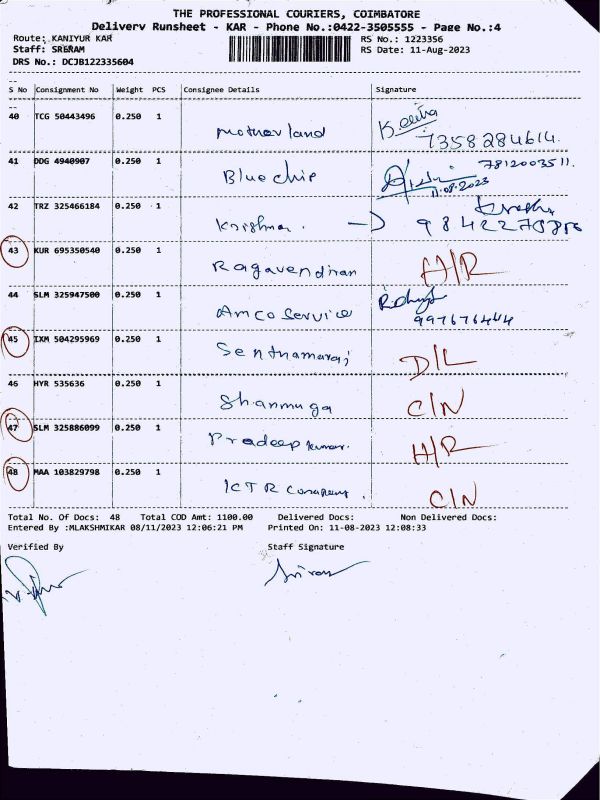 THE PROFESSIONAL COURIERS, COIMBATORE
Delivery Runsheet - KAR - Phone No.:0422-3505555 - Page No.:4
Route: KANIYUR KAR RS No.: 1223356
Staff: SRERAM RS Date: 11-Aug-2023
DRS No.: DCJB122335604
S No Consignment No Weight PCS Consignee Details Signature
40 TCG 50443496 0.250 1
Motherland 7358284614
41 DDG 4940907 0.250 1 7812003511.
Bluechip 11.08.2023
42 TRZ 325466184 0.250 1
Krishna.
43 KUR 695350540 0.250 1
Ragavendiran H/R
44 SLM 325947500 0.250 1
Amco Service 997676444
45 IXM 504295969 0.250 1
Senthamarai D/L
46 HYR 535636 0.250 1
Shanmuga C/N
47 SLM 325886099 0.250 1
Pradeep Kumar. H/R
48 MAA 103829798 0.250 1
ICTR Company. C/N
Total No. Of Docs: 48 Total COD Amt: 1100.00 Delivered Docs: Non Delivered Docs:
Entered By :MLAKSHMIKAR 08/11/2023 12:06:21 PM Printed On: 11-08-2023 12:08:33
Verified By Staff Signature